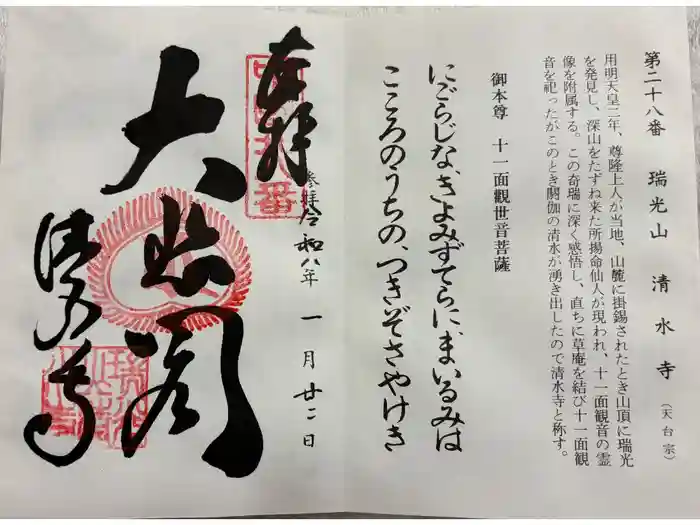 第二十八番　瑞光山　清水寺（天台宗）
用明天皇二年、尊隆上人が当地、山麓に掛錫されたとき山頂に瑞光
を発見し、深山をたずね来た所揚命仙人が現われ、十一面観音の霊
像を附属する。この奇瑞に深く感悟し、直ちに草庵を結び十一面観
音を祀ったがこのとき閼伽の清水が湧き出したので清水寺と称す。
御本尊　十一面観世音菩薩
にごらじな、きよみずてらに、まいるみは
こころのうちの、つきぞさやけき
奉拝
参拝 令和八年 一月廿二日
大悲閣
清水寺